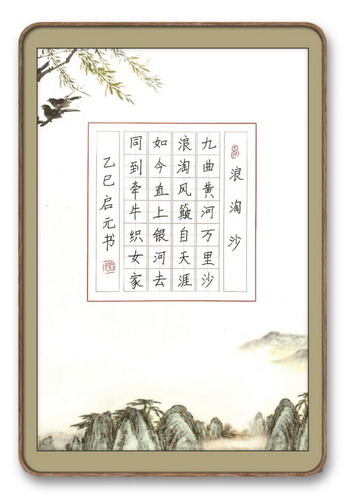 浪淘沙
九曲黄河万里沙
浪淘风簸自天涯
如今直上银河去
同到牵牛织女家
乙巳启元书